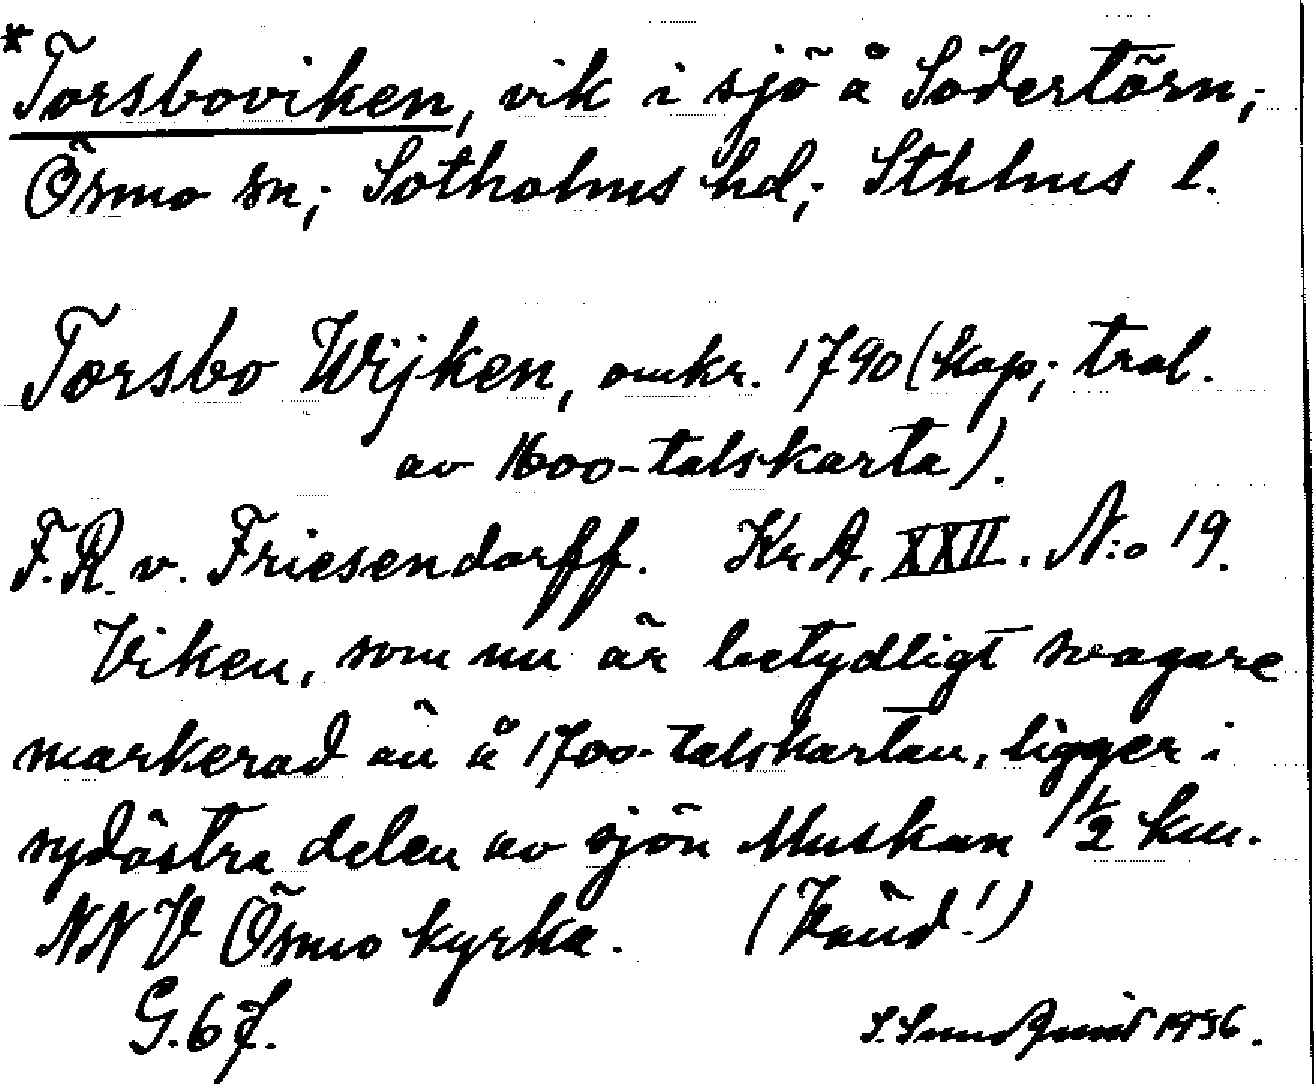 *Torsboviken, vik i sjö å Södertörn,
Ösmo sn; Sotholms hd; Sthlms l.
Torsbo Wijken, omkr. 1790 (kop; trol.
av 1600-talskarta).
F.R. v. Friesendorff. Kr.A. XXII. N:o 19.
Viken, som nu är betydligt svagare
markerad än å 1700-talskartan, ligger i
sydöstra delen av sjön Muskan 1½ km.
NNV Ösmo kyrka. (Känd!)
G. 6 f.
S. Sundquist 1936.